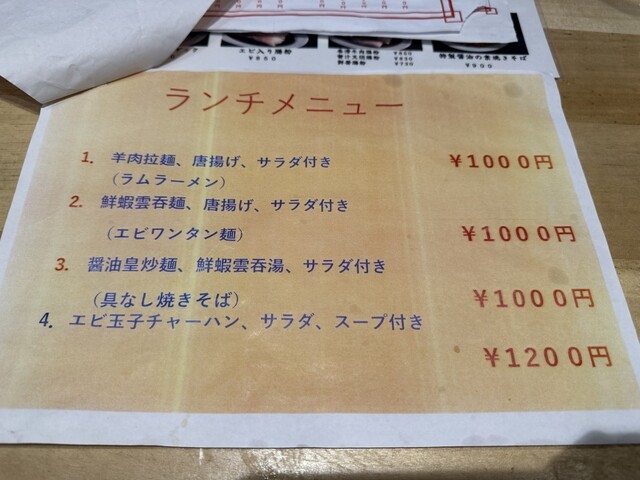 エビ入り腸粉
¥850
特製醤油の素焼きそば
¥900
ランチメニュー
1. 羊肉拉麺、唐揚げ、サラダ付き ¥1000円
(ラムラーメン)
2. 鮮蝦雲呑麺、唐揚げ、サラダ付き
(エビワンタン麺) ¥1000円
3. 醤油皇炒麺、鮮蝦雲呑湯、サラダ付き
(具なし焼きそば) ¥1000円
4. エビ玉子チャーハン、サラダ、スープ付き
¥1200円